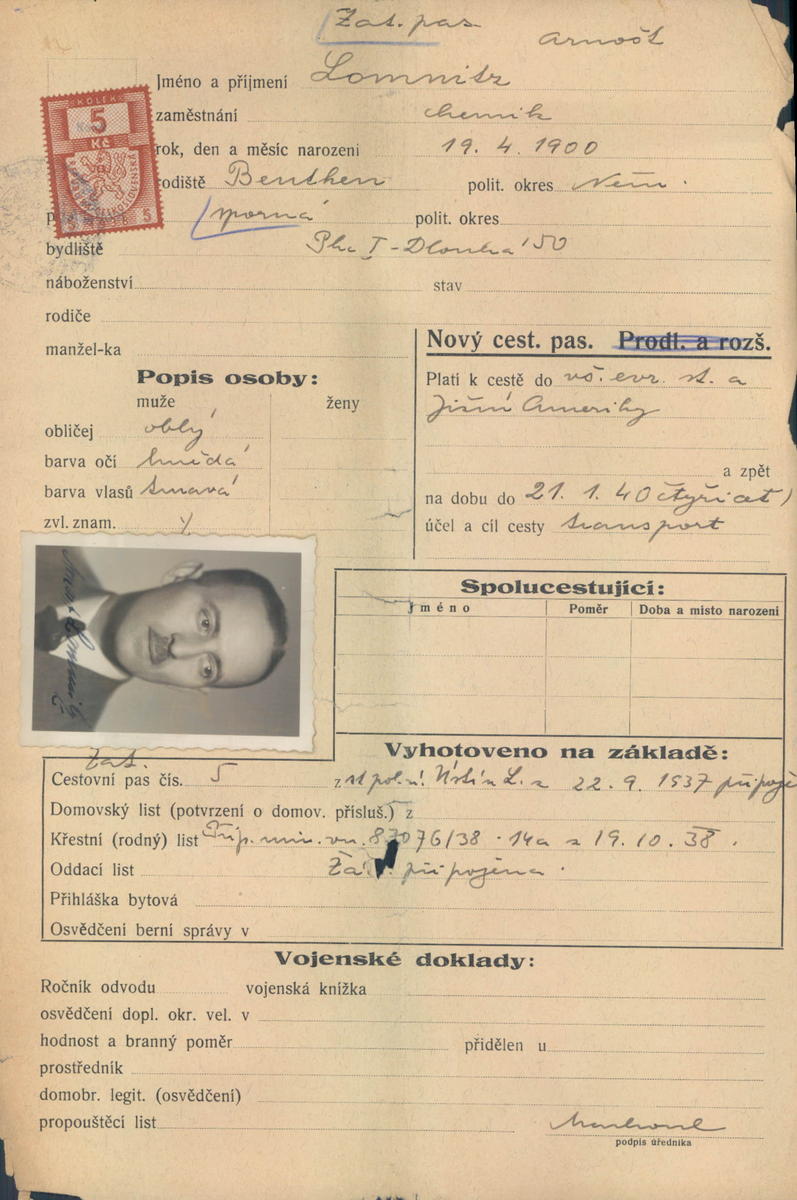 Zat. pas
Arnošt
Jméno a příjmení Lomnitz
zaměstnání chemik
rok, den a měsíc narozeni 19. 4. 1900
rodiště Beuthen polit. okres Něm.
sporná polit. okres
bydliště Pha I - Dlouhá 50
náboženství stav
rodiče
manžel-ka
KOLEK
5
Kč
5
Nový cest. pas. Prodl. a rozš.
Platí k cestě do vš. evr. st. a
Jižní Ameriky
a zpět
na dobu do 21. 1. 40 (čtyřicet)
účel a cíl cesty transport
Popis osoby:
muže ženy
obličej oblý
barva očí hnědá
barva vlasů tmavá
zvl. znam.
Spolucestující:
Jméno Poměr Doba a misto narozeni
Vyhotoveno na základě:
Zat.
Cestovní pas čís. 5 z st. pol. ú. Ústí n L. z 22. 9. 1937 připoje
Domovský list (potvrzení o domov. přísluš.) z
Křestní (rodný) list Příp. min. vn. 87076/38 - 14a z 19. 10. 38.
Oddací list připojena.
Přihláška bytová
Osvědčení berní správy v
Vojenské doklady:
Ročník odvodu vojenská knížka
osvědčení dopl. okr. vel. v
hodnost a branný poměr přidělen u
prostředník
domobr. legit. (osvědčení)
propouštěcí list
podpis úředníka